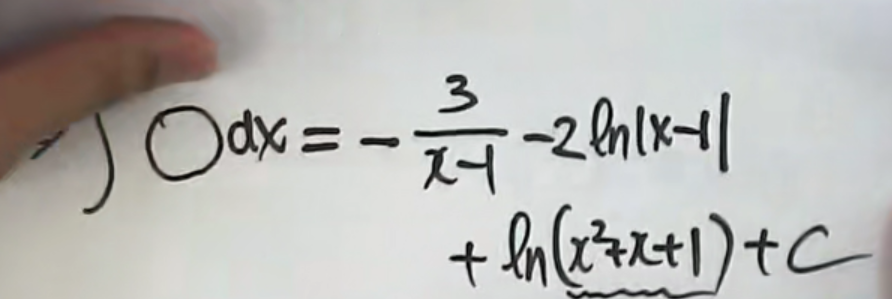 ∫ ◯ dx = - 3/(x-1) - 2 ln|x-1|
+ ln(x²+x+1) + C